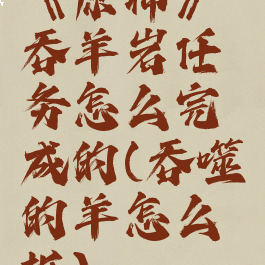 《原神》
吞羊岩任
务怎么完
成的(吞噬
的羊怎么
抓)